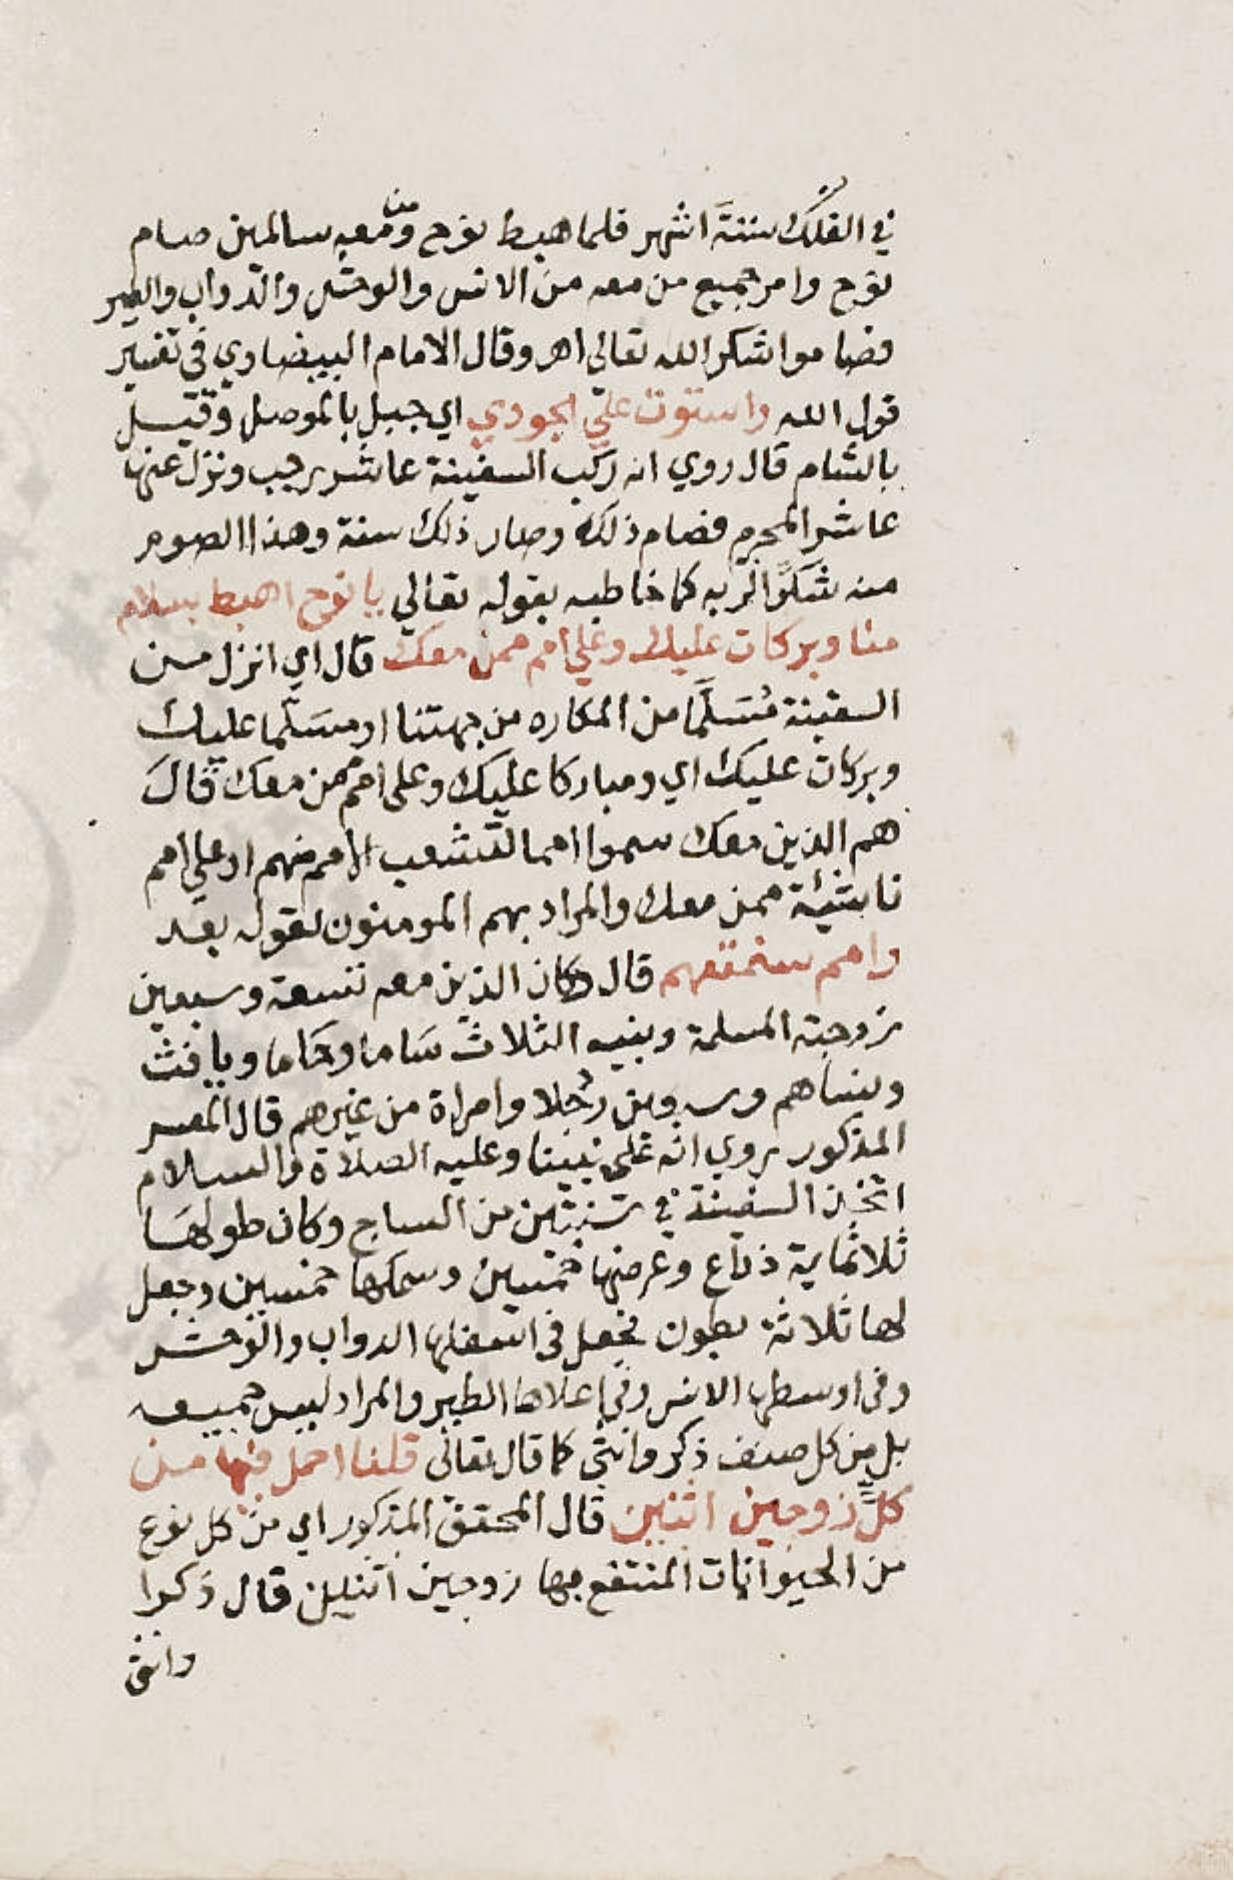 في الفلك ستةَ اشهر فلما هبط نوح ومن معه سالمين صام
نوح وامر جميع من معه من الانس والوحش والدواب والطير
فصاموا شكرا لله تعالي اهـ وقال الامام البيضاوي في تفسير
قول الله واستوت علي الجودي اي جبل بالموصل وقيل
بالشام قال روي انه ركب السفينة عاشر رجب ونزل عنها
عاشر المحرم فصام ذلك وصار ذلك سنة وهذا الصوم
منه شكرًا لربه كما خاطبه بقوله تعالي يا نوح اهبط بسلام
منا وبركات عليك وعلي امم ممن معك قال اي انزل من
السفينة مُسَلَّمًا من المكاره من جهتنا او مسَلَّما عليك
وبركات عليك اي ومباركا عليك وعلى امم ممن معك قال
هم الذين معك سموا امما لتشعب الامم منهم او علي امم
ناشئة ممن معك والمراد بهم المومنون لقوله بعد
وامم سنمتعهم قال وكان الذين معه تسعة وسبعين
زوجته المسلمة وبنيه الثلاث سَاما وحَاما ويافث
ونساهم و رجُلا وامراة من غيرهم قال المفسر
المذكور روي انه على نبينا وعليه الصلاة والسلام
اتخذ السفينة في سنتين من الساج وكان طولها
ثلاثماية ذراع وعرضها خمسين وسمكها خمسين وجعل
لها ثلاثة بطون فجعل في اسفلها الدواب والوحش
وفي اوسطها الانس وفي اعلاها الطير والمراد ليس جميعه
بل من كل صنف ذكر وانثي كما قال تعالى قلنا احمل فيها من
كلٍّ زوجين اثنين قال المحقق المذكور اي من كل نوع
من الحيوانات المنتفع بها زوجين اثنين قال ذكرا
وانثى